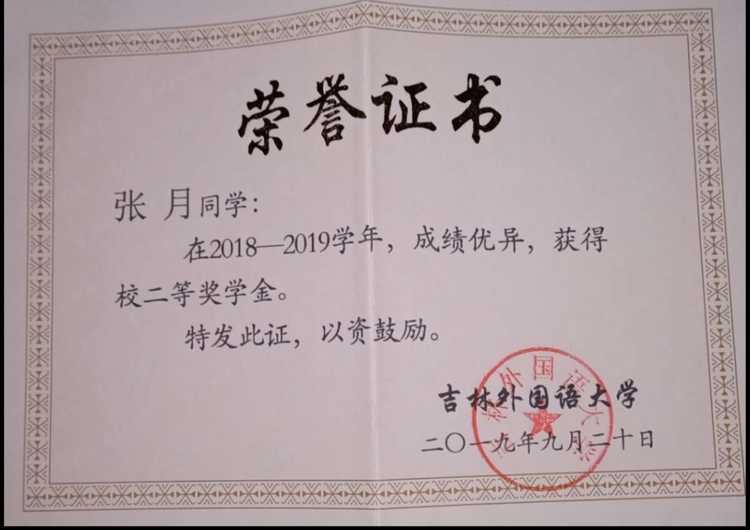 荣誉证书
张 月同学：
在2018—2019学年，成绩优异，获得
校二等奖学金。
特发此证，以资鼓励。
吉林外国语大学
二〇一九年九月二十日
吉林外国语大学